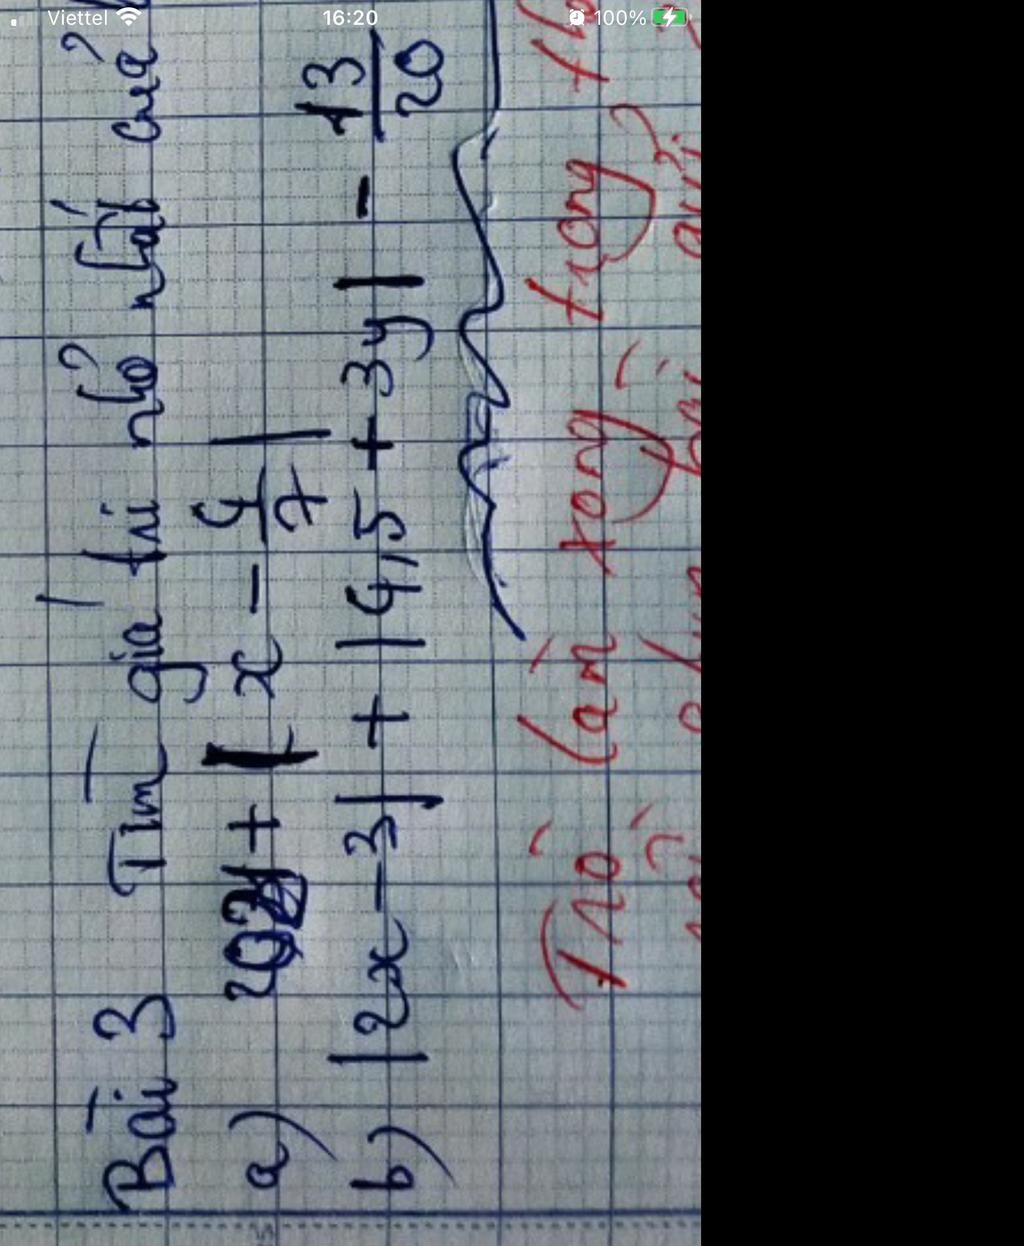 Viettel 16:20 100%
Bài 3 Tìm giá trị nhỏ nhất của
a) + | x - 4/7 |
b) |2x - 3| + |4,5 + 3y| - 13/20
Trò làm xong trong